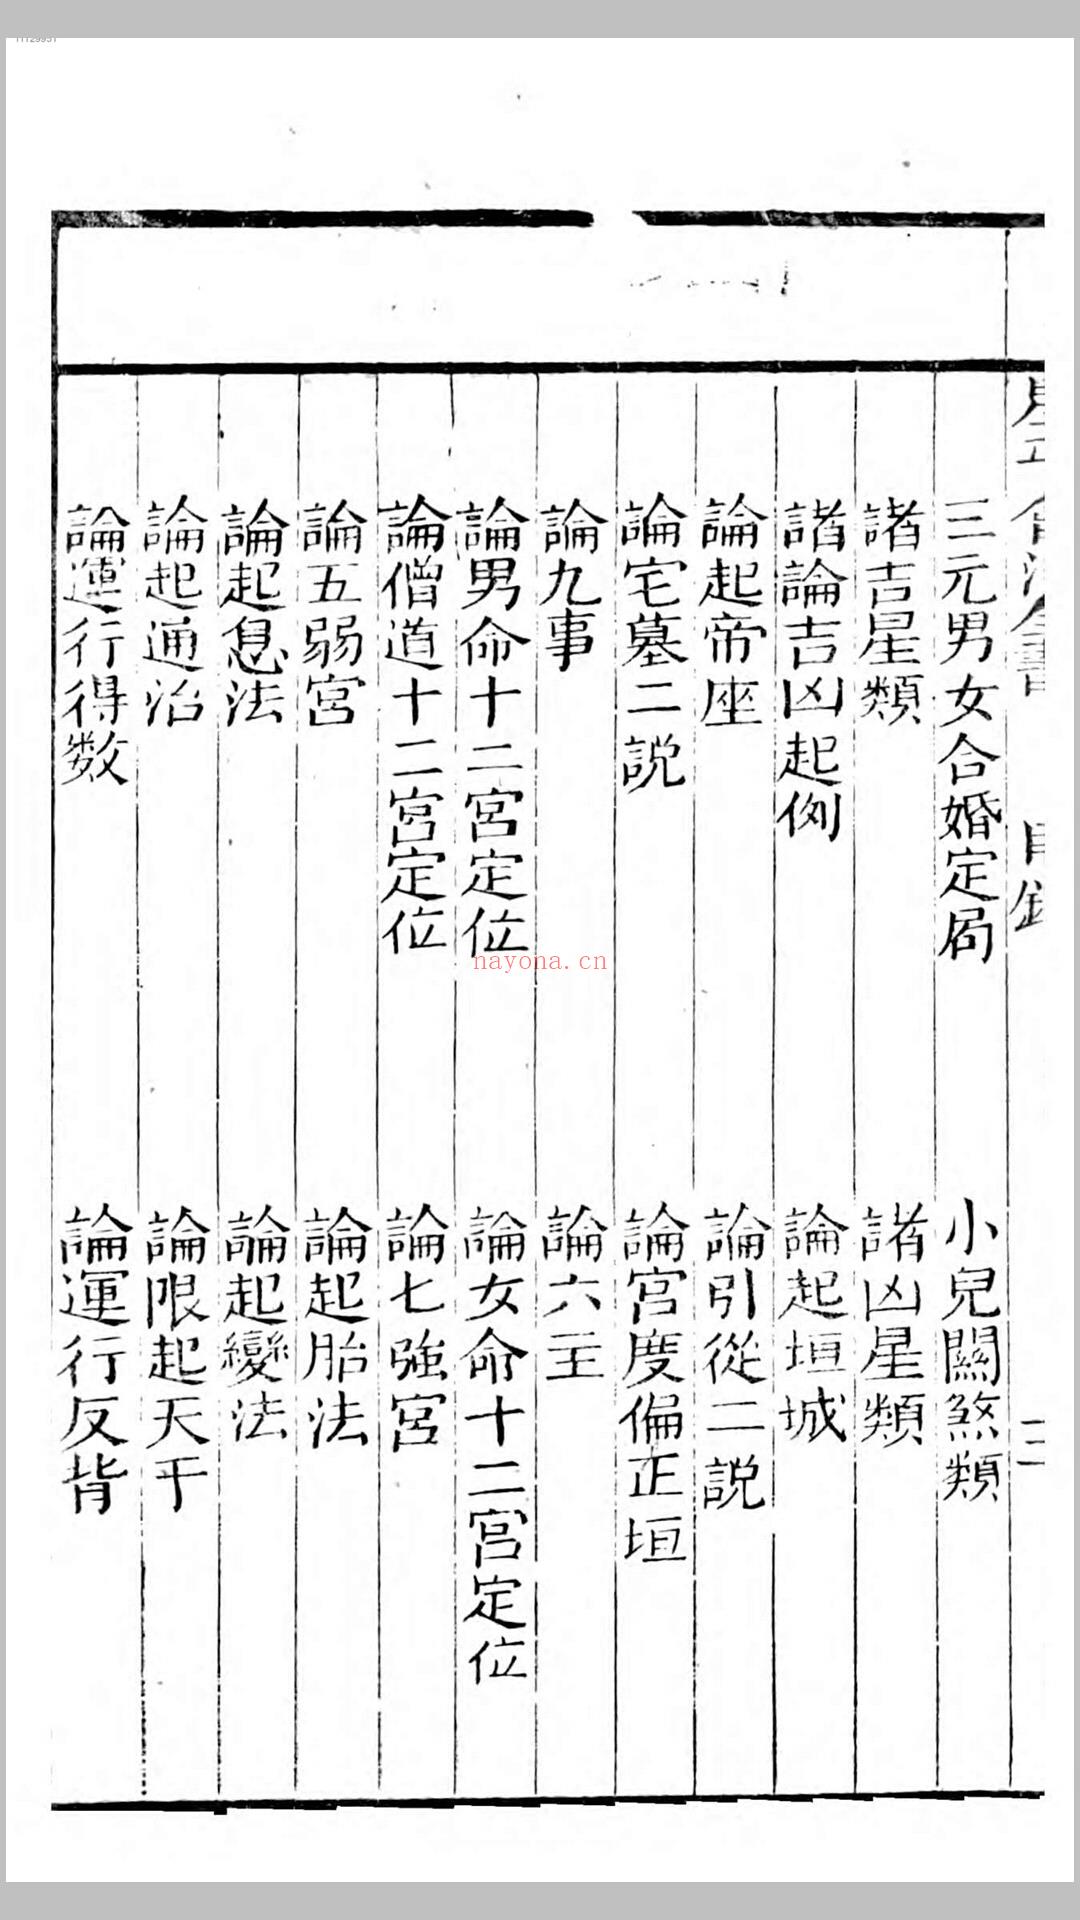 三元男女合婚定局　小兒關煞類
諸吉星類　諸凶星類
諸論吉凶起例　論起垣城
論起帝座　論引從二説
論宅墓二説　論宮度偏正垣
論九事　論六主
論男命十二宮定位　論女命十二宮定位
論僧道十二宮定位　論七強宮
論五弱宮　論起胎法
論起息法　論起變法
論起通治　論限起天干
論運行得数　論運行反背
目錄
nayona.cn